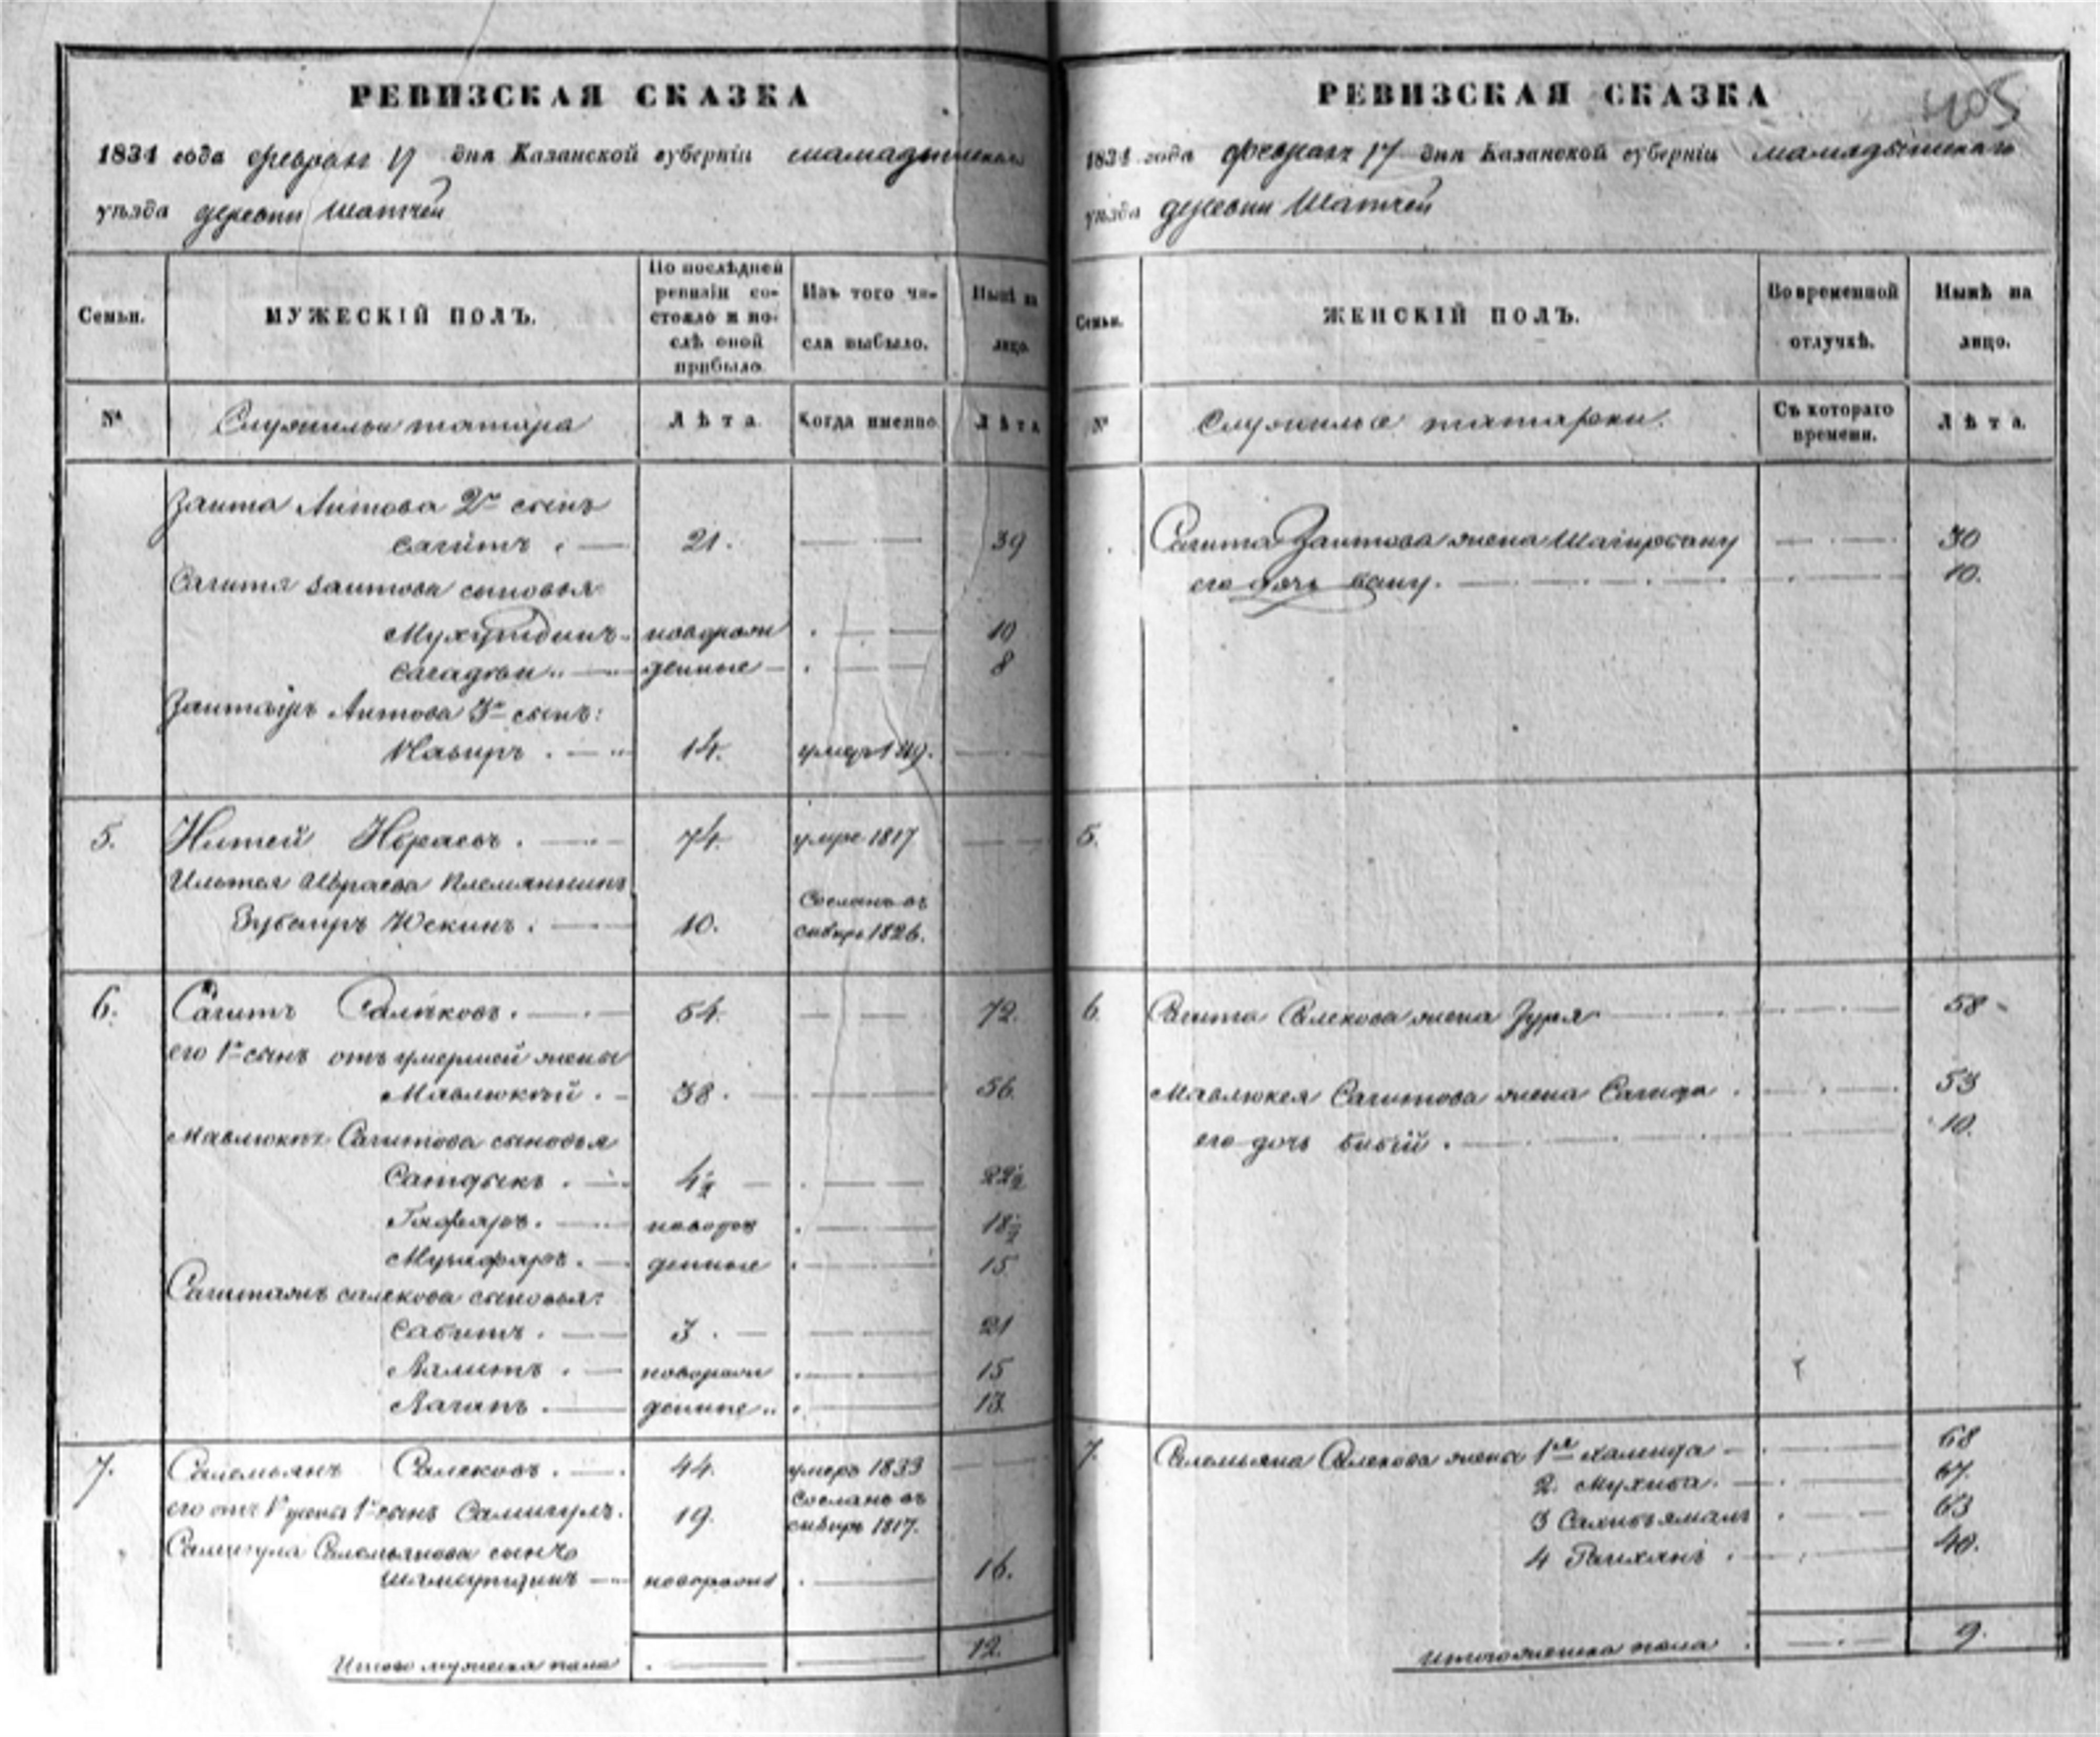 РЕВИЗСКАЯ СКАЗКА
1834 года февраля 17 дня Казанской губерніи мамадышскаго
уѣзда деревни Шатчей
Семьи.
МУЖЕСКІЙ ПОЛЪ.
По послѣдней ревизіи состояло и послѣ оной прибыло.
Изъ того числа выбыло.
Нынѣ на лицо.
№
Служилыи татара
Лѣта.
Когда именно.
Лѣта
Заита Аитова 2й сынъ
Сагитъ 21. 39
Сагита Заитова сыновья
новорож 10
Сагадѣи денные 8
Аитова 3й сынъ:
14. умеръ 1819.
5. 74. умре 1817
племянникъ
Зубаиръ Юскинъ. 10. Сосланъ въ
сибирь 1826.
6. Сагитъ Салѣковъ. 54. 72.
его 1й сынъ отъ умершей жены
Мавлюкѣй. 38. 56.
Сагитова сыновья
Сатдыкъ. 4½ 22½
Гафаръ. новорож 18½
денные 15
Салекова сыновья:
Сабитъ. 3. 21
новорож 15
денные 13.
7. Салемьянъ Салековъ. 44. умеръ 1833
его отъ 1й жены 1й сынъ Салигулъ. 19. Сосланъ въ
сибирь 1817.
Салемьянова сынъ
новорож 16.
Итого мужеска пола 12.
РЕВИЗСКАЯ СКАЗКА
405
1834 года февраля 17 дня Казанской губерніи мамадышскаго
уѣзда деревни Шатчей
Семьи.
ЖЕНСКІЙ ПОЛЪ.
Во временной отлучкѣ.
Нынѣ на лицо.
№
Служилые татарки.
Съ котораго времени.
Лѣта.
Сагита Заитова жена 30
его дочь Бану. 10.
5.
6. Сагита Салекова жена Зуря 58
Мавлюкея Сагитова жена Сагида 53
его дочь Бибій. 10.
7. Салемьяна Салекова жены 1я Халида 68
2. Мухиба. 67.
3 Сахибъямалъ 63
4 Раиханѣ 40.
Итого женска пола 9.